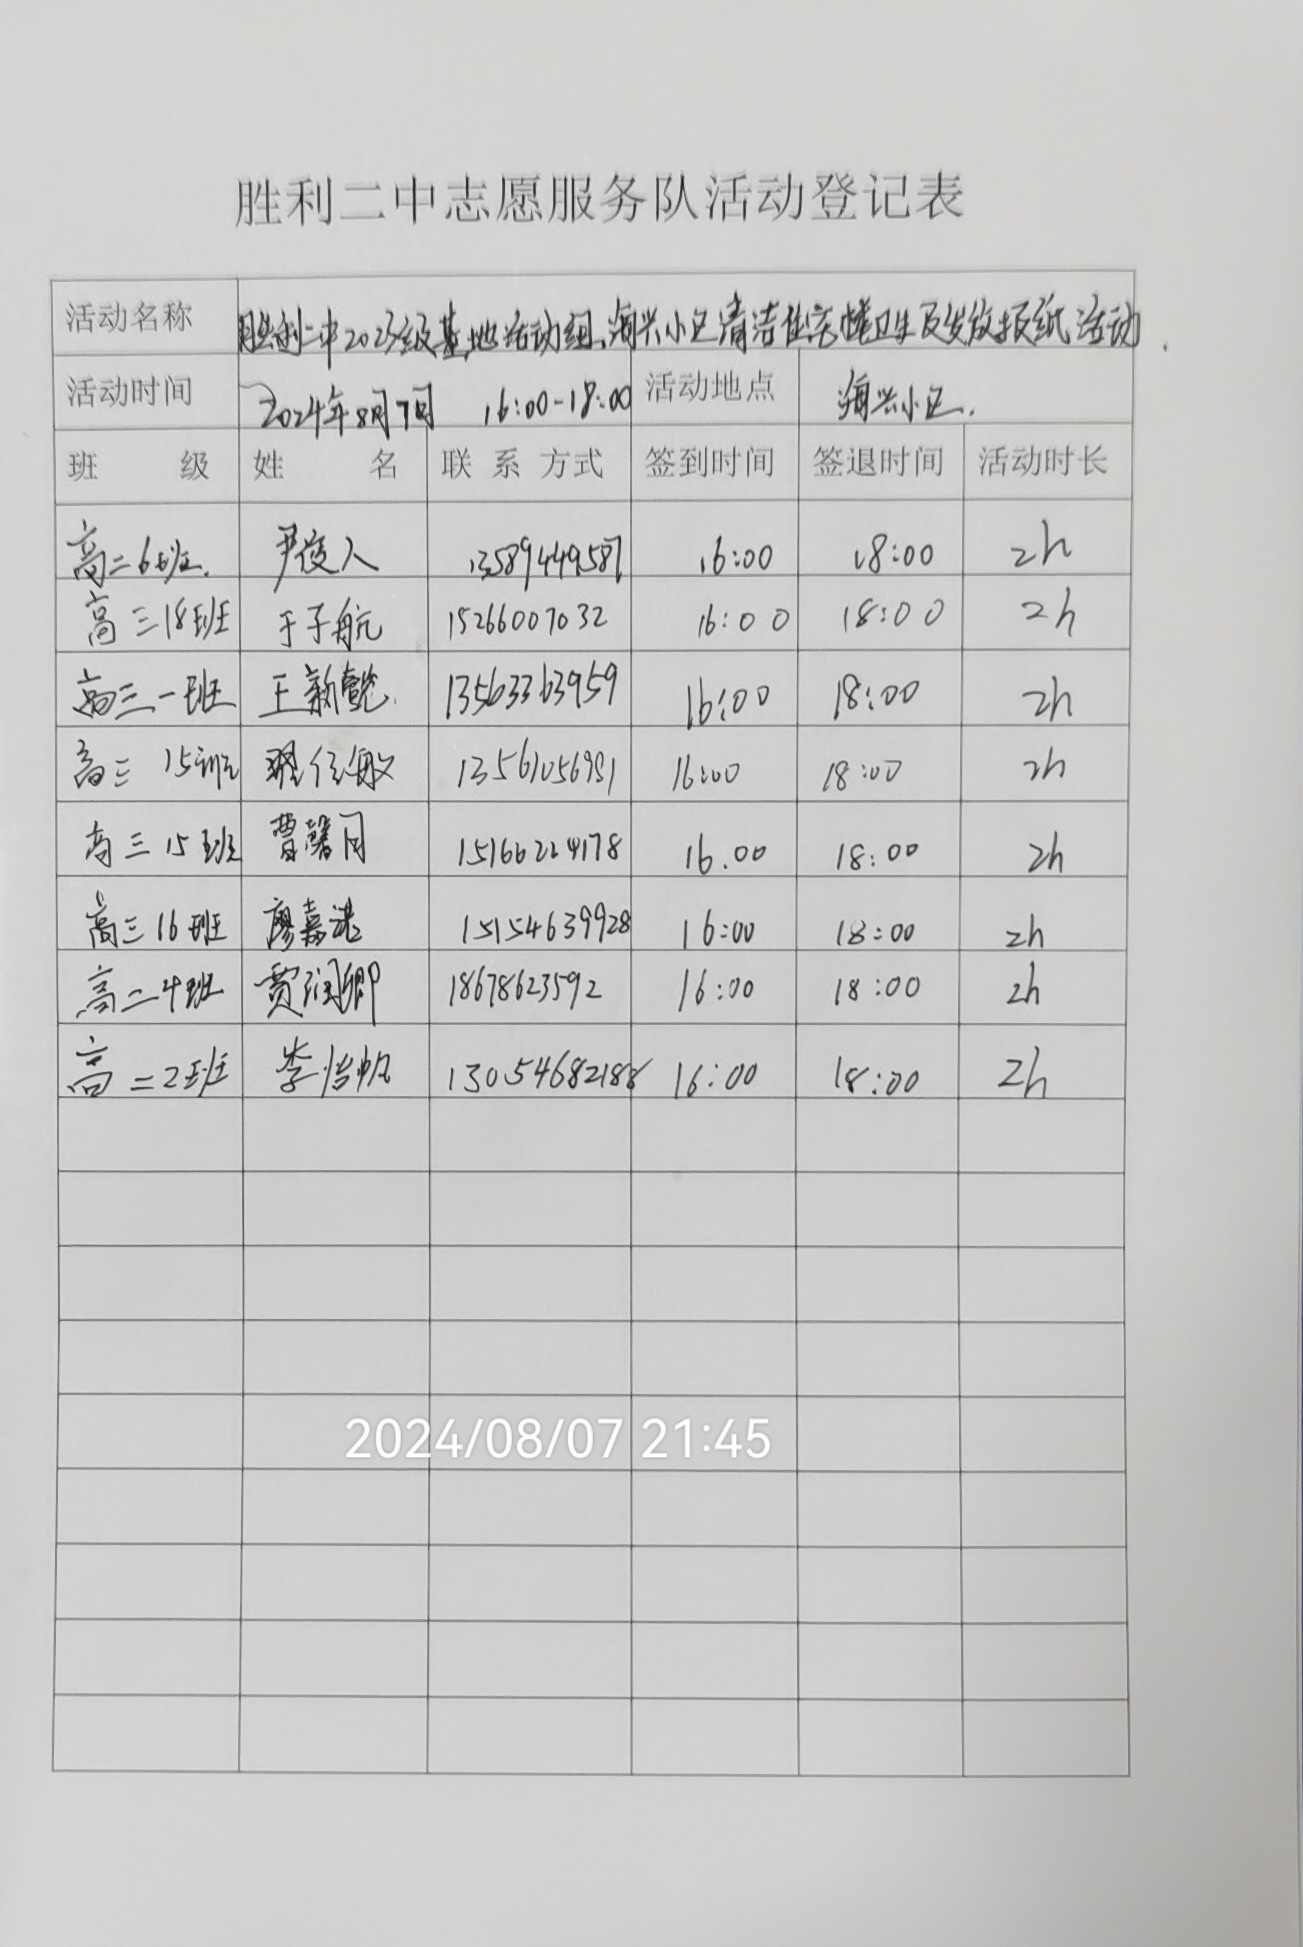 胜利二中志愿服务队活动登记表
活动名称 胜利二中2023级基地活动组海兴小区清洁住宅楼卫生及发放报纸活动.
活动时间 2024年8月7日 16:00-18:00 活动地点 海兴小区.
班 级 姓 名 联系方式 签到时间 签退时间 活动时长
高二6班. 尹俊人 13589449587 16:00 18:00 2h
高三18班 于子航 15266007032 16:00 18:00 2h
高三一班 王新懿. 13563363959 16:00 18:00 2h
高三 15班 13561056951 16:00 18:00 2h
高三15班 曹馨月 15166224178 16.00 18:00 2h
高三16班 廖嘉 15154639928 16:00 18:00 2h
高二4班 贾润卿 18678623592 16:00 18:00 2h
高二2班 李怡帆 13054682188 16:00 18:00 2h
2024/08/07 21:45